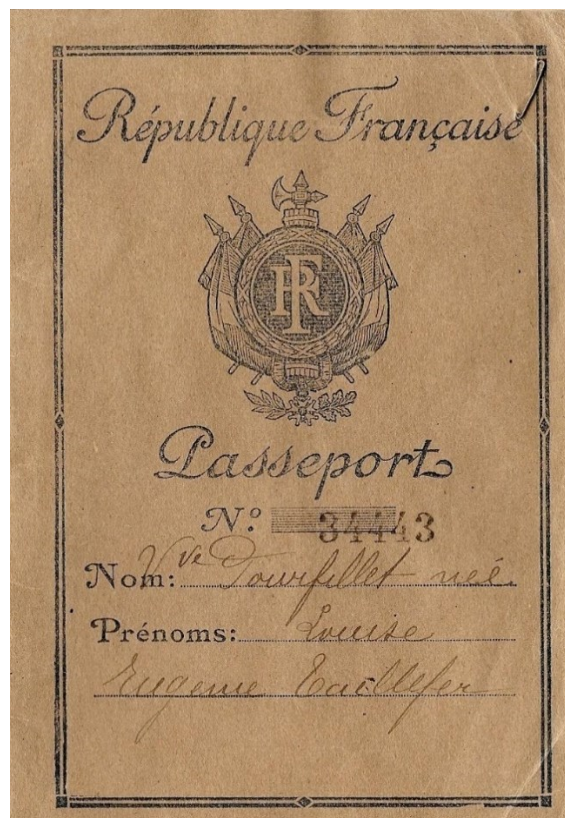 République Française
RF
Passeport
Nº 34443
Nom: Vve Tourfillet née
Prénoms: Louise
Eugenie Taillefer